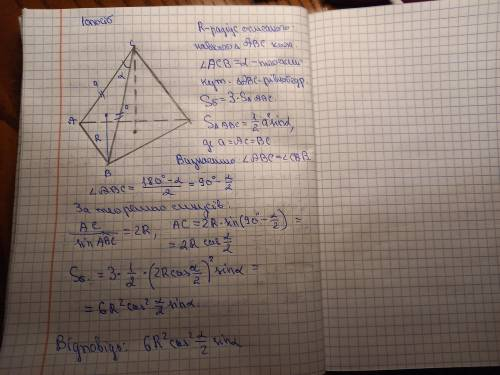 I спосіб
C
α
a
a
A
R
B
R-радіус описаного
навколо △ABC кола.
∠ACB=α - плоский
кут. △ABC-рівнобедр.
Sб=3·S△ABC.
S△ABC=1/2 a² sinα,
де a=AC=BC
∠ABC=
∠ABC = (180°-α)/2 = 90° - α/2
За теоремою синусів:
AC/sin ABC = 2R, AC = 2R·sin(90° - α/2) =
= 2R cos α/2
Sб. = 3·1/2·(2R cos α/2)² sinα =
= 6R² cos² α/2 sinα.
Відповідь: 6R² cos² α/2 sinα